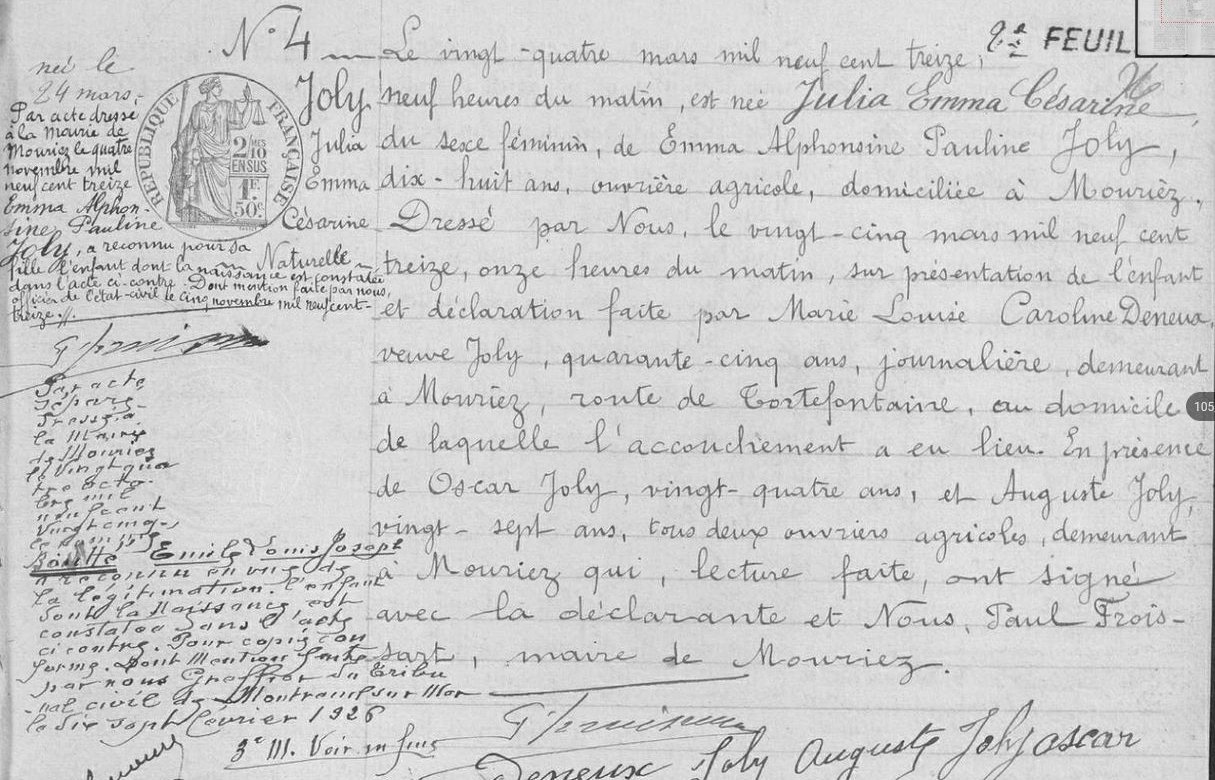 N° 4
2e FEUIL
né le
24 mars.
Par acte dressé
à la mairie de
Mouriez le quatre
novembre mil
neuf cent treize
Emma Alphon-
sine Pauline
Joly, a reconnu pour sa
fille l'enfant dont la naissance est constatée
dans l'acte ci-contre. Dont mention faite par nous,
officier de l'état-civil le cinq novembre mil neuf cent-
treize.
RÉPUBLIQUE FRANÇAISE
2/10 EN SUS
1F. 50c
Joly
Julia
Emma
Césarine
Naturelle
Le vingt-quatre mars mil neuf cent treize,
neuf heures du matin, est née Julia Emma Césarine,
du sexe féminin, de Emma Alphonsine Pauline Joly,
dix-huit ans, ouvrière agricole, domiciliée à Mourièz.
Dressé par Nous, le vingt-cinq mars mil neuf cent
treize, onze heures du matin, sur présentation de l'enfant
et déclaration faite par Marie Louise Caroline Deneux,
veuve Joly, quarante-cinq ans, journalière, demeurant
à Mouriez, route de Tortefontaine, au domicile
de laquelle l'accouchement a eu lieu. En présence
de Oscar Joly, vingt-quatre ans, et Auguste Joly,
vingt-sept ans, tous deux ouvriers agricoles, demeurant
à Mouriez qui, lecture faite, ont signé
avec la déclarante et Nous, Paul Frois-
sart, maire de Mouriez.
Par acte
séparé
dressé à
la Mairie
de Mouriez
le vingt qua
tre octo-
bre mil
neuf cent
vingt cinq
Emile Louis Joseph
a reconnu en vue de
la légitimation, l'enfant
dont la naissance est
constatée dans l'acte
ci contre. Pour copie con
forme. Dont Mention faite
par nous Greffier du Tribu
nal civil de Montreuil sur Mer
le dix sept février 1926
3e M. Voir in fine
Deneux Joly Auguste Joly oscar
105